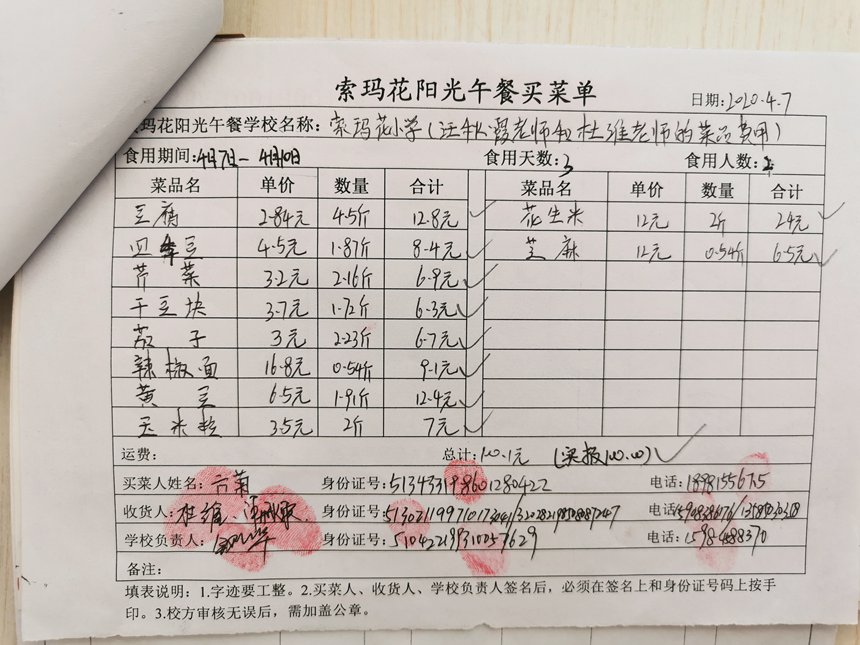 索玛花阳光午餐买菜单
日期:2020.4.7
玛花阳光午餐学校名称:索玛花小学(汪秋霞老师和杜维老师的菜品费用)
食用期间:4月7日-4月10日 食用天数:3 食用人数:2
菜品名 单价 数量 合计 菜品名 单价 数量 合计
豆腐 2.84元 4.5斤 12.8元 花生米 12元 2斤 24元
四季豆 4.5元 1.87斤 8.4元 芝麻 12元 0.54斤 6.5元
芹菜 3.2元 2.16斤 6.9元
干豆块 3.7元 1.72斤 6.3元
茄子 3元 2.23斤 6.7元
辣椒面 16.8元 0.54斤 9.1元
黄豆 6.5元 1.91斤 12.4元
玉米粒 3.5元 2斤 7元
运费: 总计:100.1元 (实报100.00)
买菜人姓名: 身份证号: 电话:
收货人:杜维 身份证号: 电话:
学校负责人: 身份证号: 电话:
备注:
填表说明:1.字迹要工整。2.买菜人、收货人、学校负责人签名后,必须在签名上和身份证号码上按手
印。3.校方审核无误后,需加盖公章。